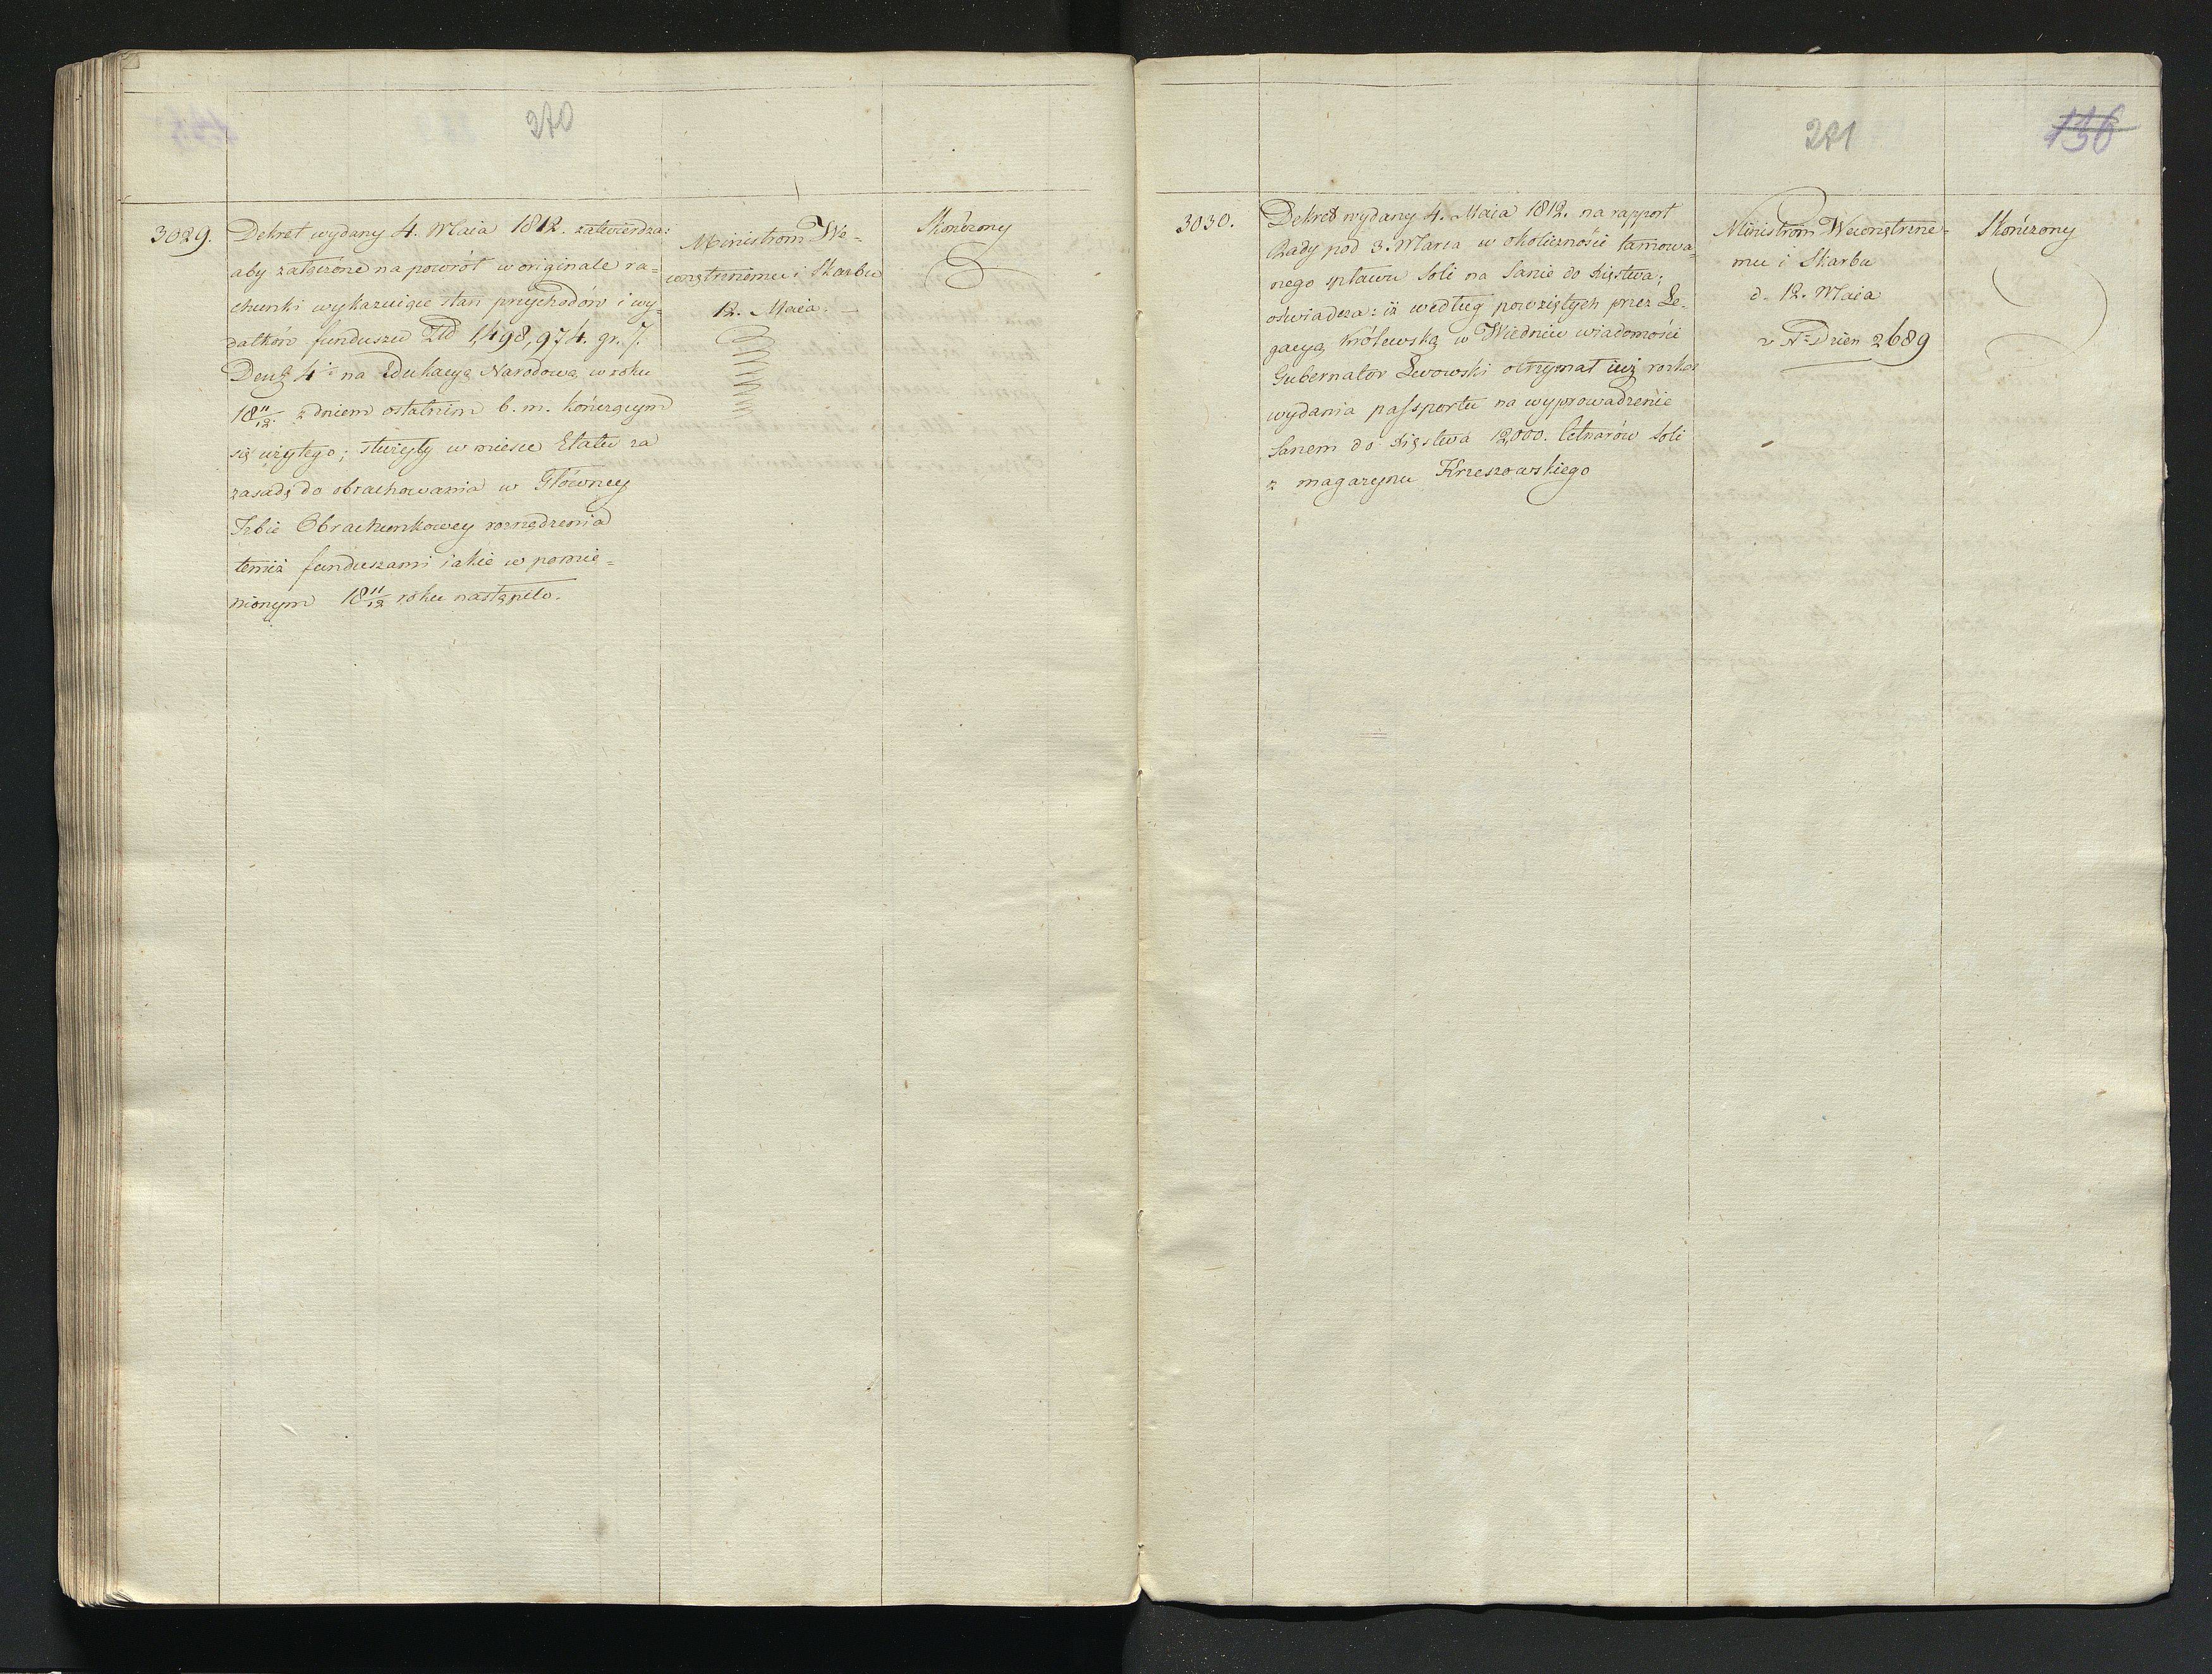 270
3029.
Dekret wydany 4. Maia 1812. zatwierdza:
aby załączone na powrót w originale ra=
chunki wykazuiące stan przychodów i wy=
datków funduszu Złł 1,498,974. gr. 7.
4 na Edukacyą Narodową w roku
18 11/12 z dniem ostatnim b. m. kończącym
się użytego; służyły w miesce Etatu za
zasadę do obrachowania w Główney
Izbie Obrachunkowey rozrządzenia
temiż funduszami iakie w pomie=
nionym 18 11/12 roku nastąpiło.
Ministrom We=
wnętrznemu i Skarbu
12. Maia. —
Skończony
271
136
3030.
Dekret wydany 4. Maia 1812. na rapport
Rady pod 3. Marca w okoliczności tamowa=
nego spławu Soli na Sanie do Xięstwa;
oświadcza: iż według powziętych przez Le=
gacyą Królewską w Wiedniu wiadomości
Gubernator Lwowski otrzymał iuż rozkaz
wydania passportu na wyprowadzenie
Sanem do Xięstwa 12,000. Cetnarów Soli
z magazynu Krzeszowskiego
Ministrom Wewnętrzne=
mu i Skarbu
d. 12. Maia
v Nr Dzien 2689
Skończony